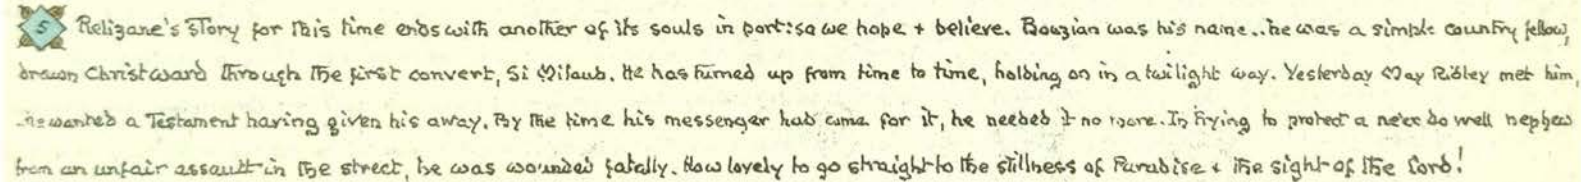 5 Relizane's story for this time ends with another of its souls in port: so we hope + believe. Bouzian was his name.. he was a simple country fellow,
drawn Christward through the first convert, Si Miloub. He has turned up from time to time, holding on in a twilight way. Yesterday May Ridley met him,
he wanted a Testament having given his away. By the time his messenger had come for it, he needed it no more. In trying to protect a ne'er do well nephew
from an unfair assault in the street, he was wounded fatally. How lovely to go straight to the stillness of Paradise & the sight of the Lord!